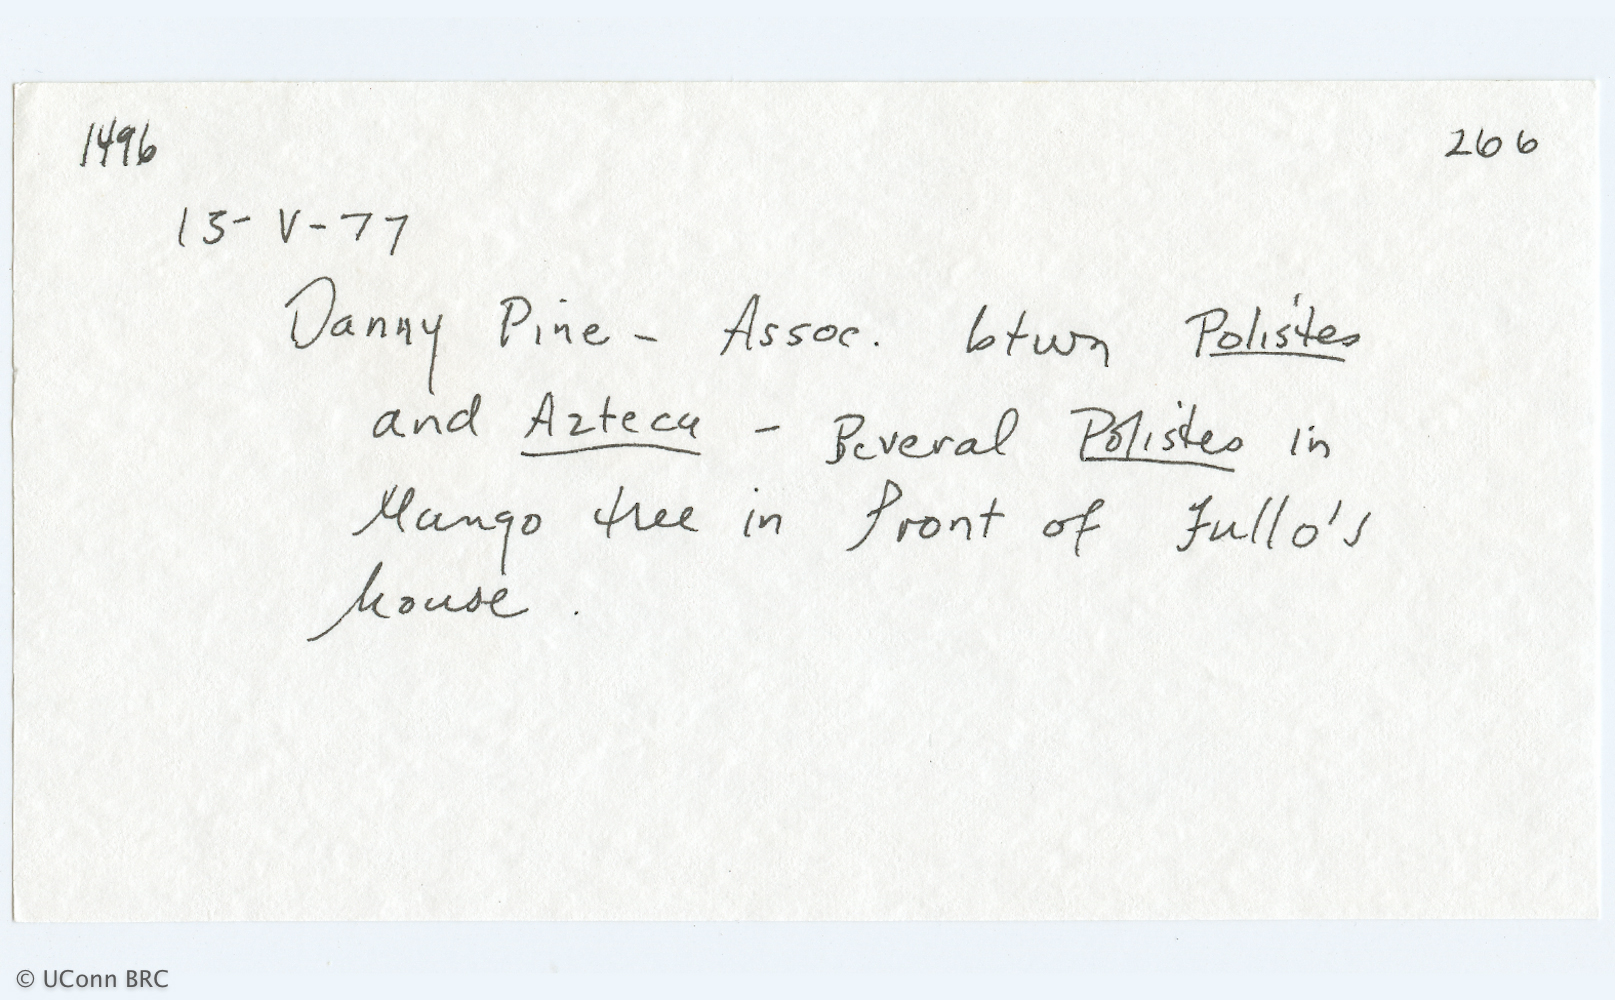 1496 266
13-V-77
Danny Pine - Assoc. btwn Polistes
and Azteca - Several Polistes in
Mango tree in front of Fullo's
house.
© UConn BRC